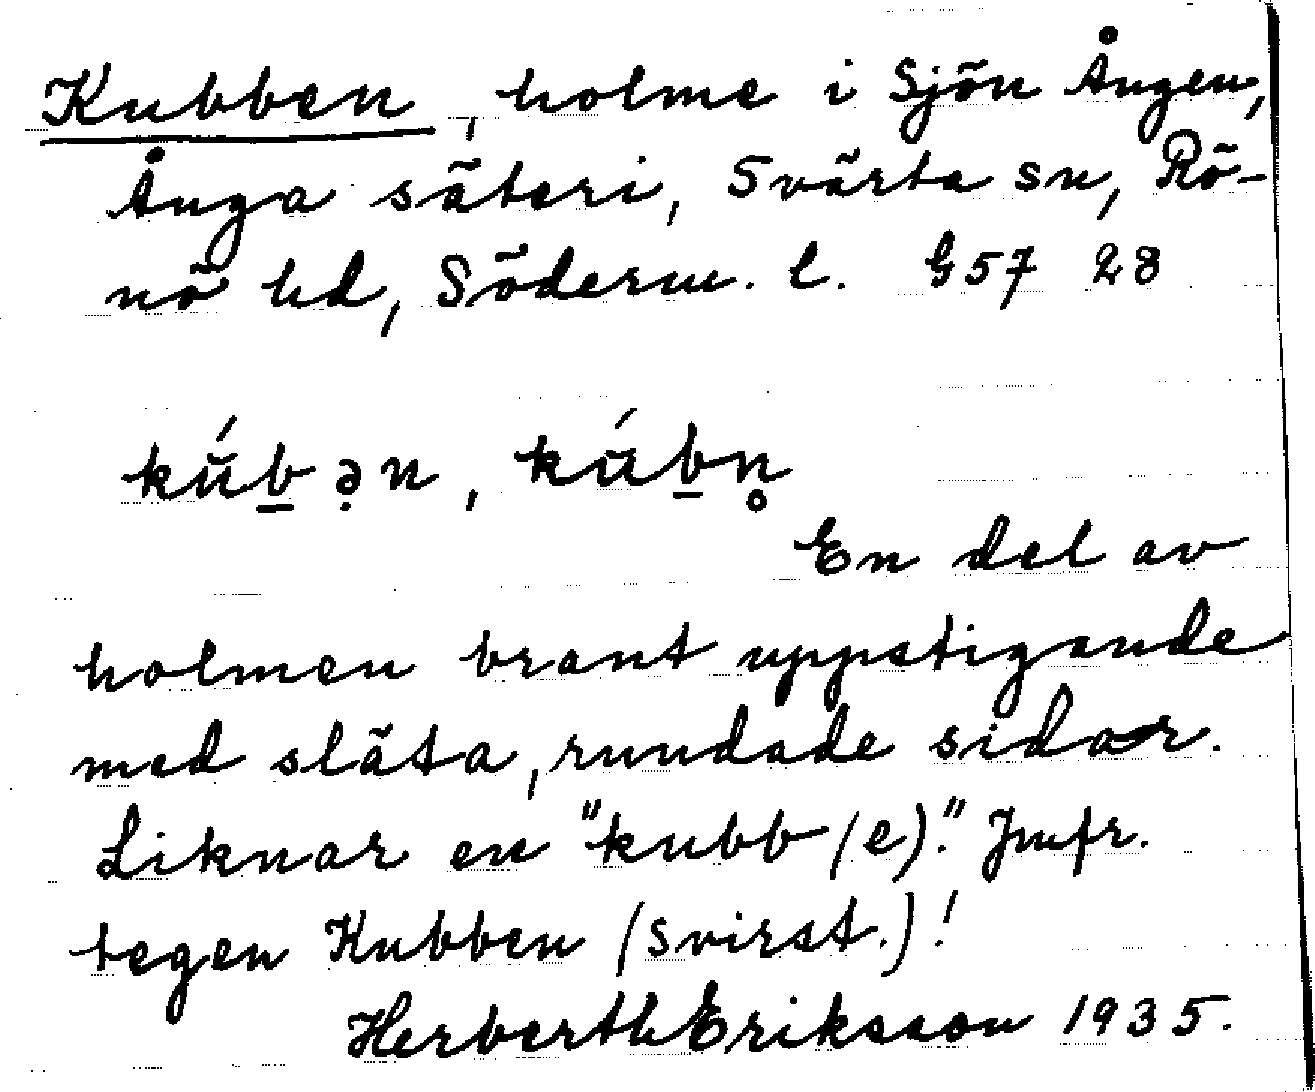 Kubben, holme i Sjön Ången,
Ånga säteri, Svärta sn, Rö-
nö hd, Söderm. l. G57 28
kú̆b̲ə̣n, kú̆b̲n̥
En del av
holmen brant uppstigande
med släta, rundade sidor.
Liknar en "kubb(e)". Jmfr.
tegen Kubben (svirst.)!
Herberth Eriksson 1935.